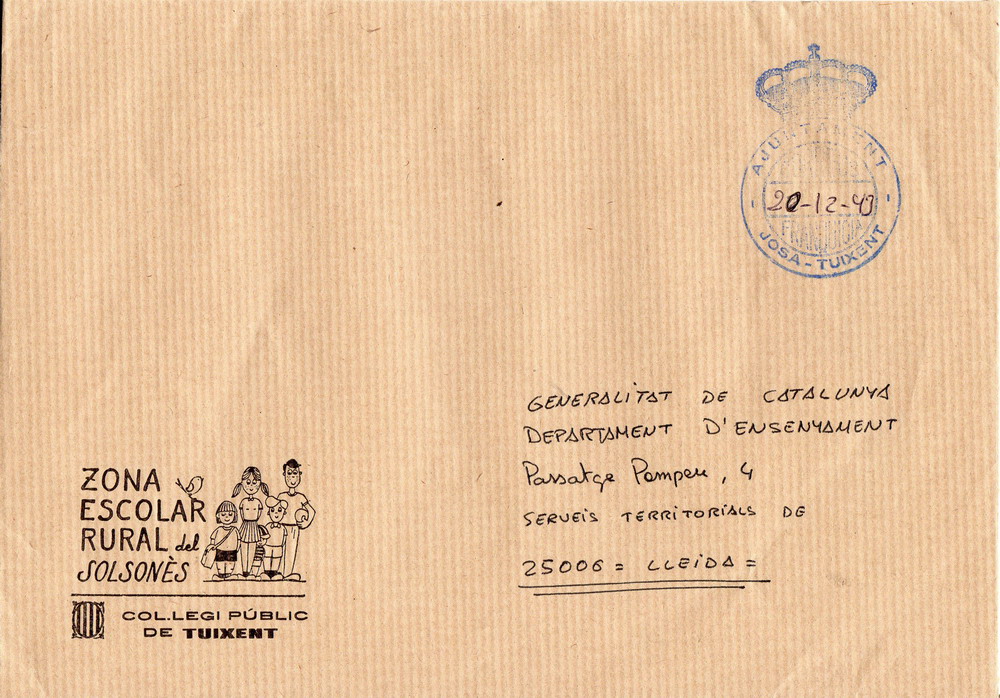 AJUNTAMENT
20-12-93
FRANQUICIA
JOSA-TUIXENT
GENERALITAT DE CATALUNYA
DEPARTAMENT D'ENSENYAMENT
Passatge Pompeu, 4
SERVEIS TERRITORIALS DE
25006 = LLEIDA =
ZONA
ESCOLAR
RURAL del
SOLSONÈS
COL.LEGI PÚBLIC
DE TUIXENT